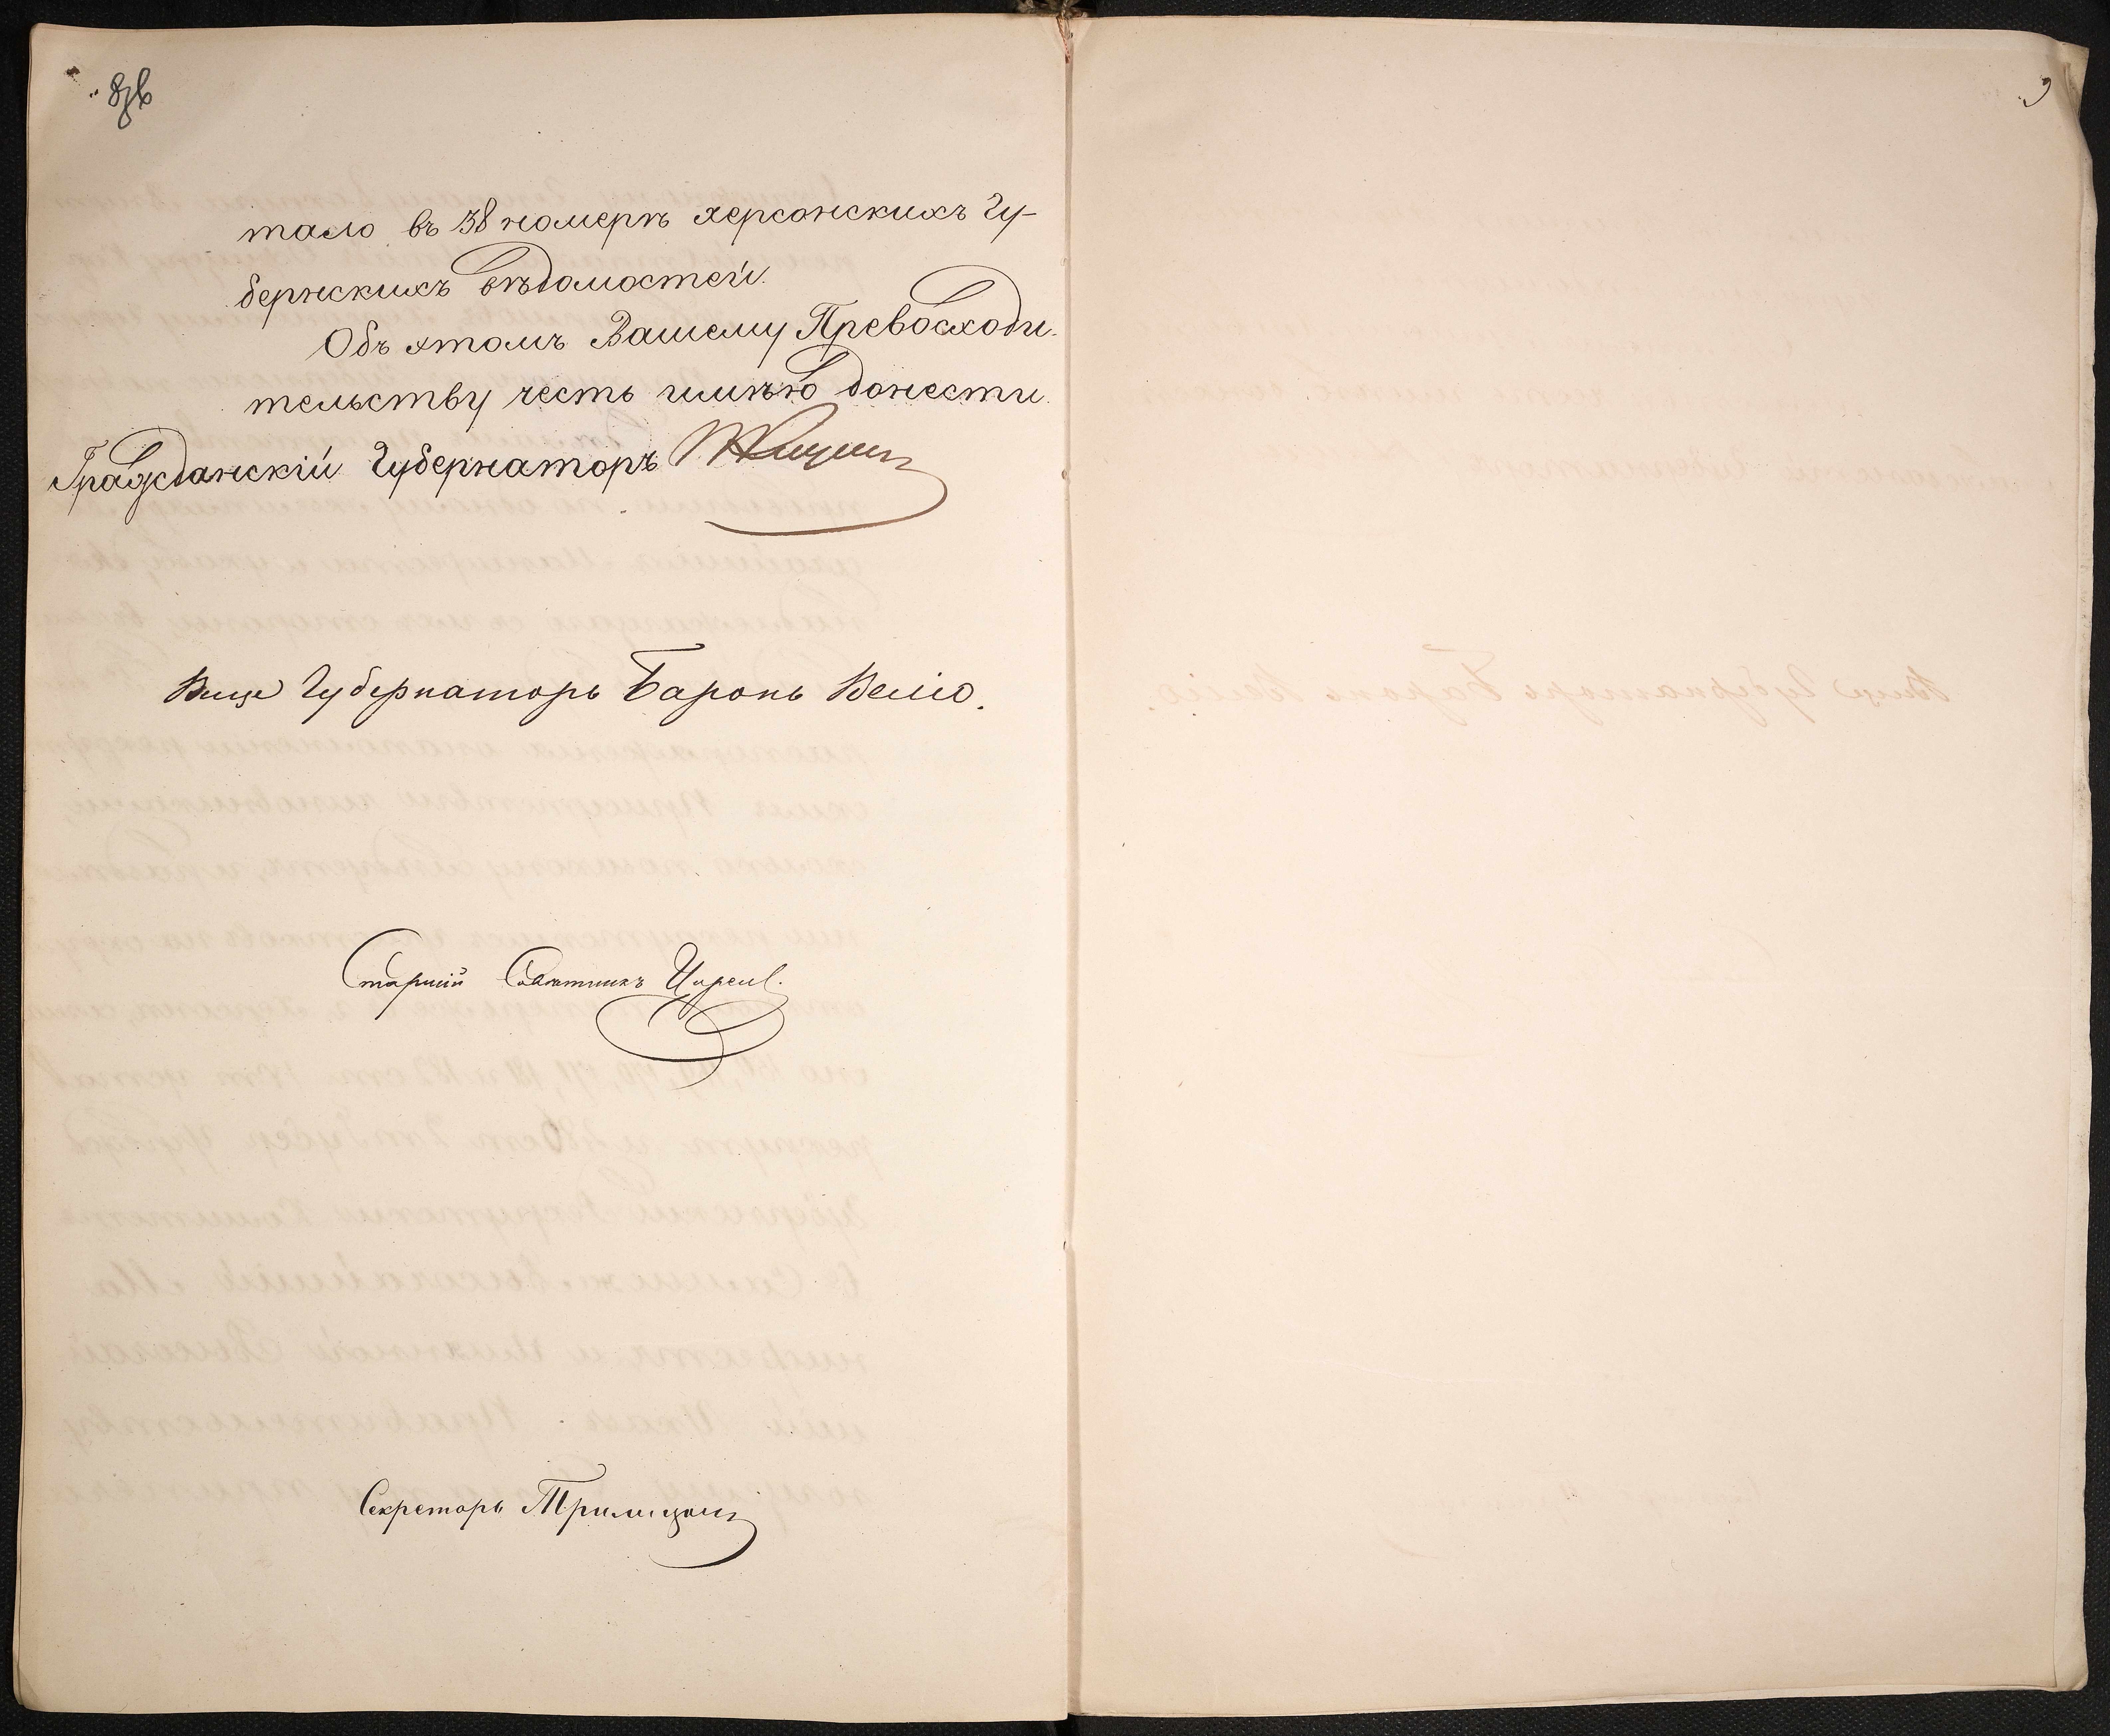 тало въ 38 номерѣ херсонскихъ Гу-
бернскихъ вѣдомостей.
Объ этомъ Вашему Превосходи-
тельству честь имѣю донести.
Гражданскій Губернаторъ
Вице Губернаторъ Баронъ Веліо.
Старшій Совѣтникъ
Секретарь
9